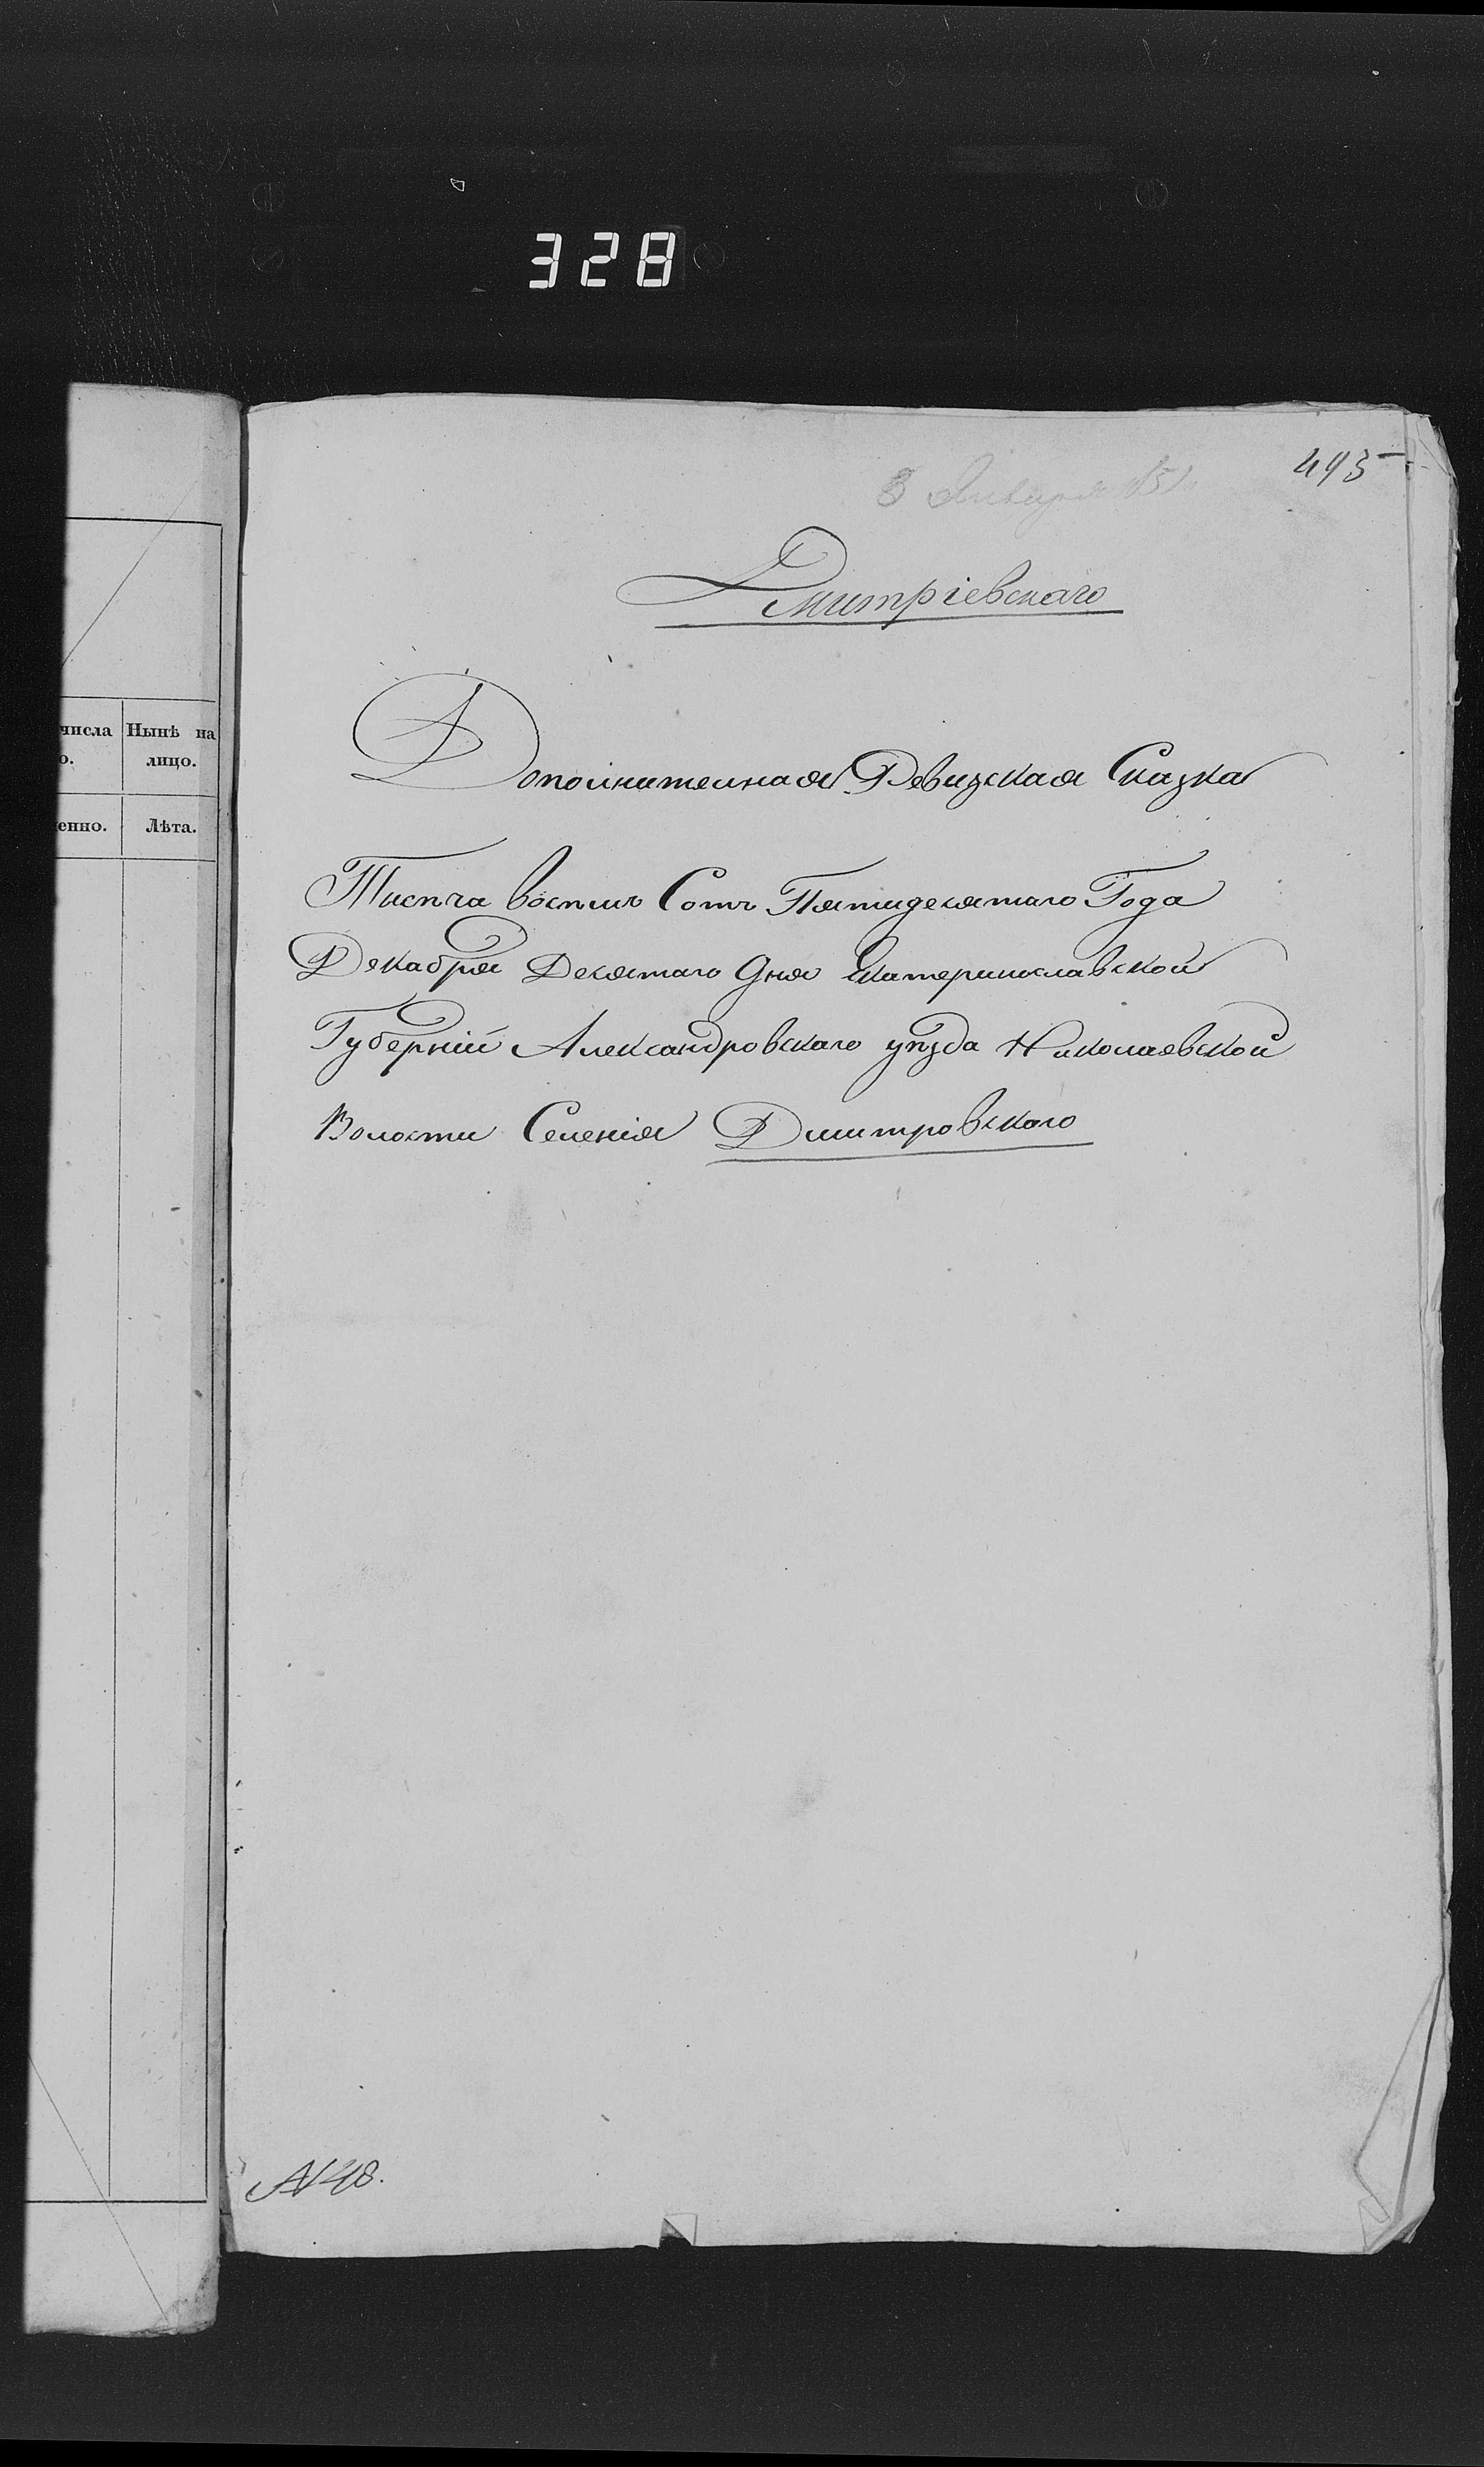 328
числа Нынѣ на
о. лицо.
енно. Лѣта.
495
3 Января 1851
Дмитріевскаго
Дополнителная Ревизская Сказка
Тисяча восѣмь Сотъ Пятидесятаго Года
Декабря Десятаго дня Екатеринославской
Губерніи Александровскаго уѣзда Николаевской
Волости Селенія Дмитровскаго
№ 48.